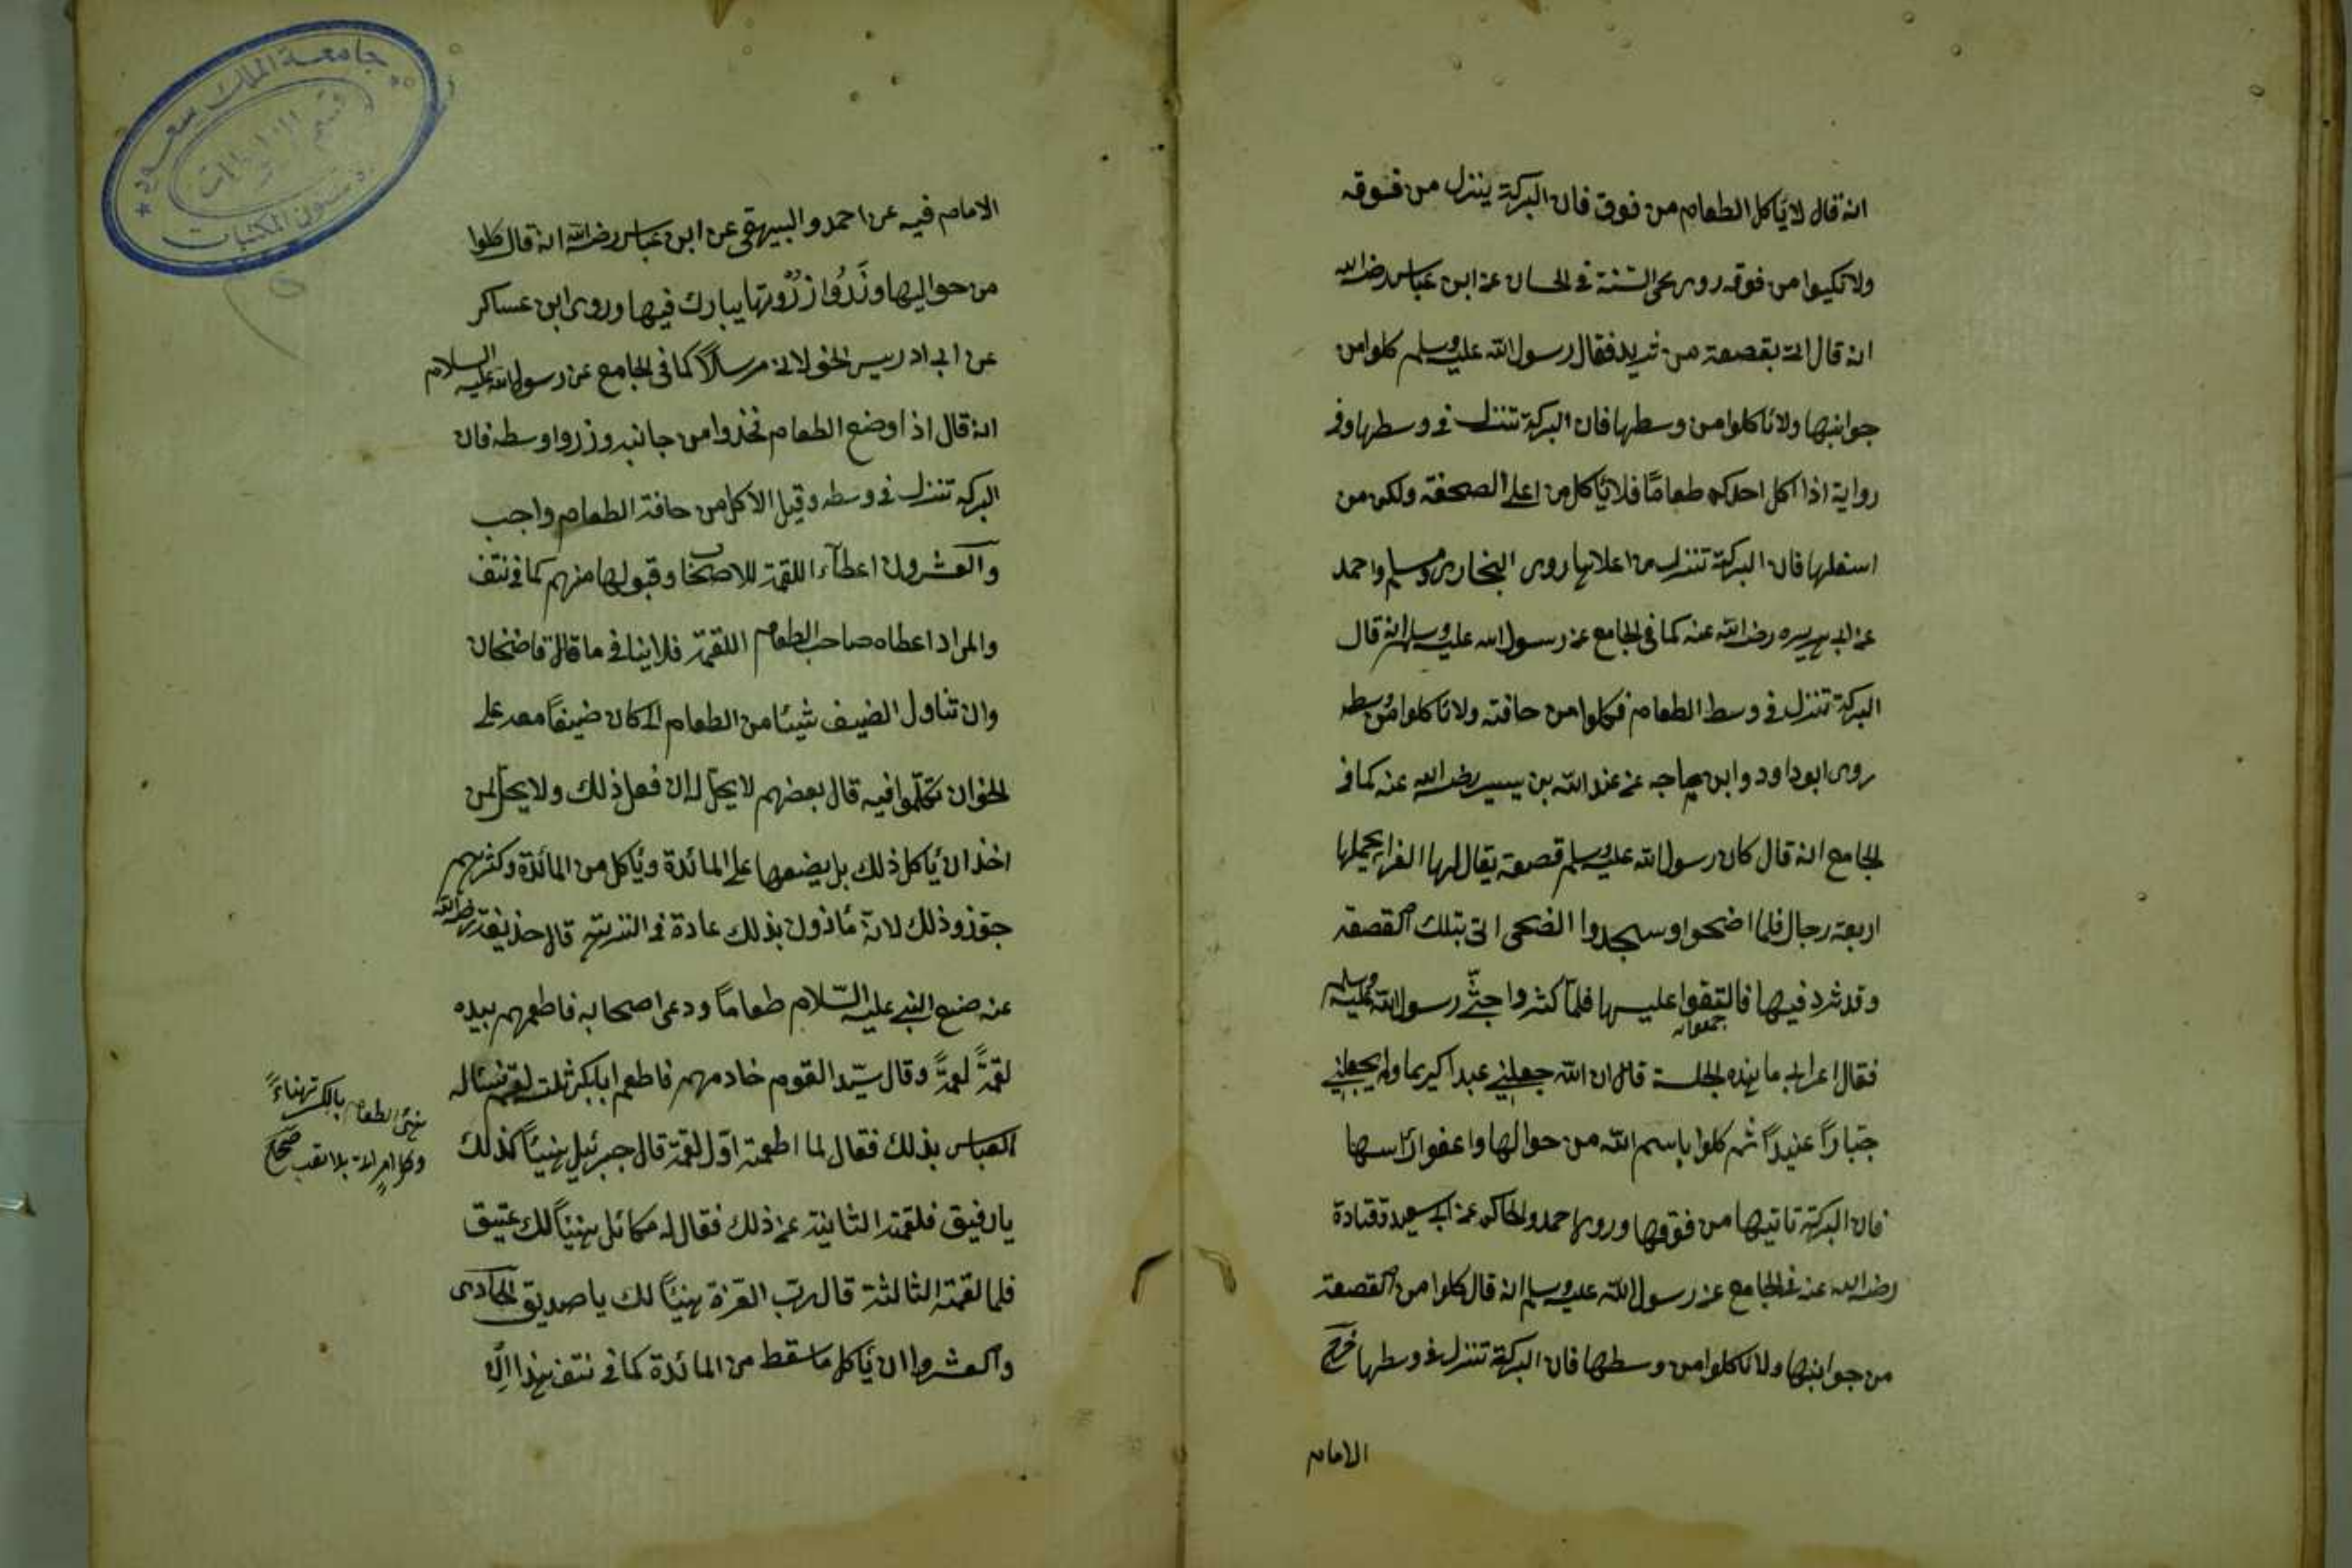 انه قال لا يأكل الطعام من فوق فان البركة ينزل من فوقه
ولا تكيوا من فوقه روى محي السنة في الحسان عن ابن عباس رضي الله
انه قال اتى بقصعة من ثريد فقال رسول الله عليه وسلم كلوا من
جوانبها ولا تاكلوا من وسطها فان البركة تنزل في وسطها وفي
رواية اذا اكل احدكم طعامًا فلا يأكل من اعلى الصحفة ولكن من
اسفلها فان البركة تنزل من اعلاها روى البخارى ومسلم واحمد
عن ابى هريره رضي الله عنه كما في الجامع عن رسول الله عليه وسلم انه قال
البركة تنزل في وسط الطعام فكلوا من حافته ولا تاكلوا من وسطه
روى ابو داود وابن ماجه عن عبد الله بن بسر رضي الله عنه كما في
الجامع انه قال كان رسول الله عليه وسلم قصعة يقال لها الغراء يحملها
اربعة رجال فلما اضحوا وسجدوا الضحى اتى بتلك القصعة
وقد ثرد فيها فالتفوا عليها فلمّا كثروا جثّى رسول الله عليه وسلم
فقال اعرابى ما هذه الجلسة قال ان الله جعلنى عبدا كريما ولم يجعلنى
جبّارًا عنيدًا ثم كلوا باسم الله من حوالها واعفوا رأسها
فان البركة تاتيها من فوقها وروى احمد والحاكم عن ابى سعيد قتادة
رضي الله عنه في الجامع عن رسول الله عليه وسلم انه قال كلوا من القصعة
من جوانبها ولا تاكلوا من وسطها فان البركة تنزل في وسطها خرج
الامام
جامعة الملك سعود
قسم
شئون المكتبات
الامام فيه عن احمد والبيهقى عن ابن عباس رضي الله انه قال كلوا
من حواليها وذَرُوا ذُرْوتها يبارك فيها وروى ابن عساكر
عن ابى ادريس الخولانى مرسلاً كما في الجامع عن رسول الله عليه السلام
انه قال اذا وضع الطعام فخذوا من جانبه وذروا وسطه فان
البركة تنزل في وسطه وقيل الاكل من حافة الطعام واجب
والعشرون اعطاء اللقمة للاصحاب وقبولها منهم كما في نتف
والمراد اعطاه صاحب الطعام اللقمة فلا ينافى ما قال قاضخان
وان تناول الضيف شيئا من الطعام الى كان ضيفًا معه على
الخوان تكلّموا فيه قال بعضهم لا يحلّ له ان فعل ذلك ولا يحل لمن
اخذ ان يأكل ذلك بل يضعها على المائدة ويأكل من المائدة وكثرهم
جوّزو ذلك لانه مأذون بذلك عادة في قال حذيفة رضي الله
عنه صنع النبى عليه السّلام طعامًا ودعى اصحابه فاطعمهم بيده
لقمةً لقمةً وقال سيّد القوم خادمهم فاطعم ابابكر ثلث لقم فسئاله
العباس بذلك فقال لما اطعمته اوّل لقمة قال جبرئيل هنيئًا لك
يا رفيق فلقمته الثانية عن ذلك فقال له مكائل هنيئًا لك عتيق
فلما لقمته الثالثة قال رب العزة هنيئًا لك يا صديق الحادى
والعشروا ان يأكل ما سقط من المائدة كما في نتف هذا
الطعام بالكسر هناءً
بلا تعب صحاح